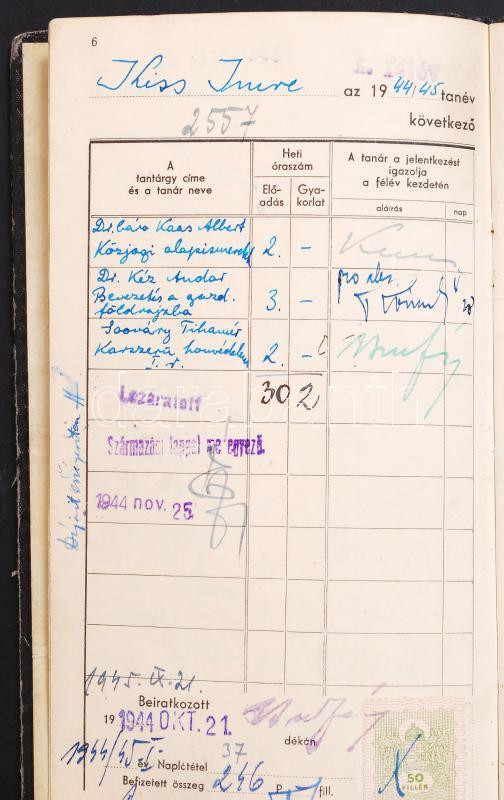 6
Kiss Imre az 1944/45 tanév
2557
következő
A tantárgy címe és a tanár neve
Heti óraszám
Elő-adás
Gya-korlat
A tanár a jelentkezést igazolja a félév kezdetén
aláírás
nap
Dr. báró Kaas Albert
Közjogi alapismeretek 2. –
Dr. Kéz Andor
Bevezetés a gazd. 3. –
földrajzba
Soováry Tihamér
Korszerű honvédelem 2. –
I. r.
30 2
Lezáratott
Származási lappal megegyező.
1944 nov. 25.
1945. IX. 21.
Beiratkozott
19 1944 OKT. 21.
dékán.
1944/45 I. év. Naplótétel 37
Befizetett összeg 246 P fill.
50
FILLÉR